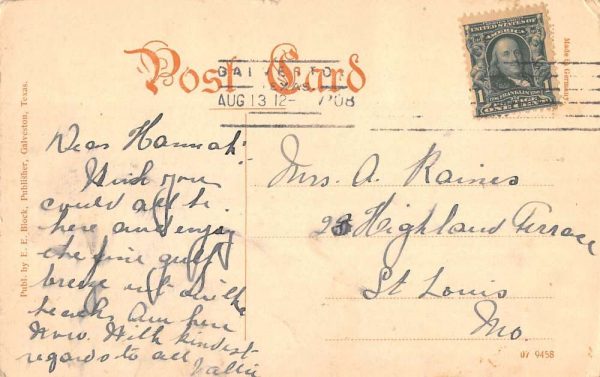 Post Card
GALVESTON
TEXAS
AUG 13 12- 1908
UNITED STATES OF AMERICA
FRANKLIN
ONE CENT
Made in Germany
Publ. by E. E. Block, Publisher, Galveston, Texas.
Dear Hannah:
Wish you
could all be
here and enjoy
the fine gulf
breeze
beach. Am here
now. With kindest
regards to all
Mrs. A. Raines
23 Highland Terrace
St Louis
Mo.
07 9458